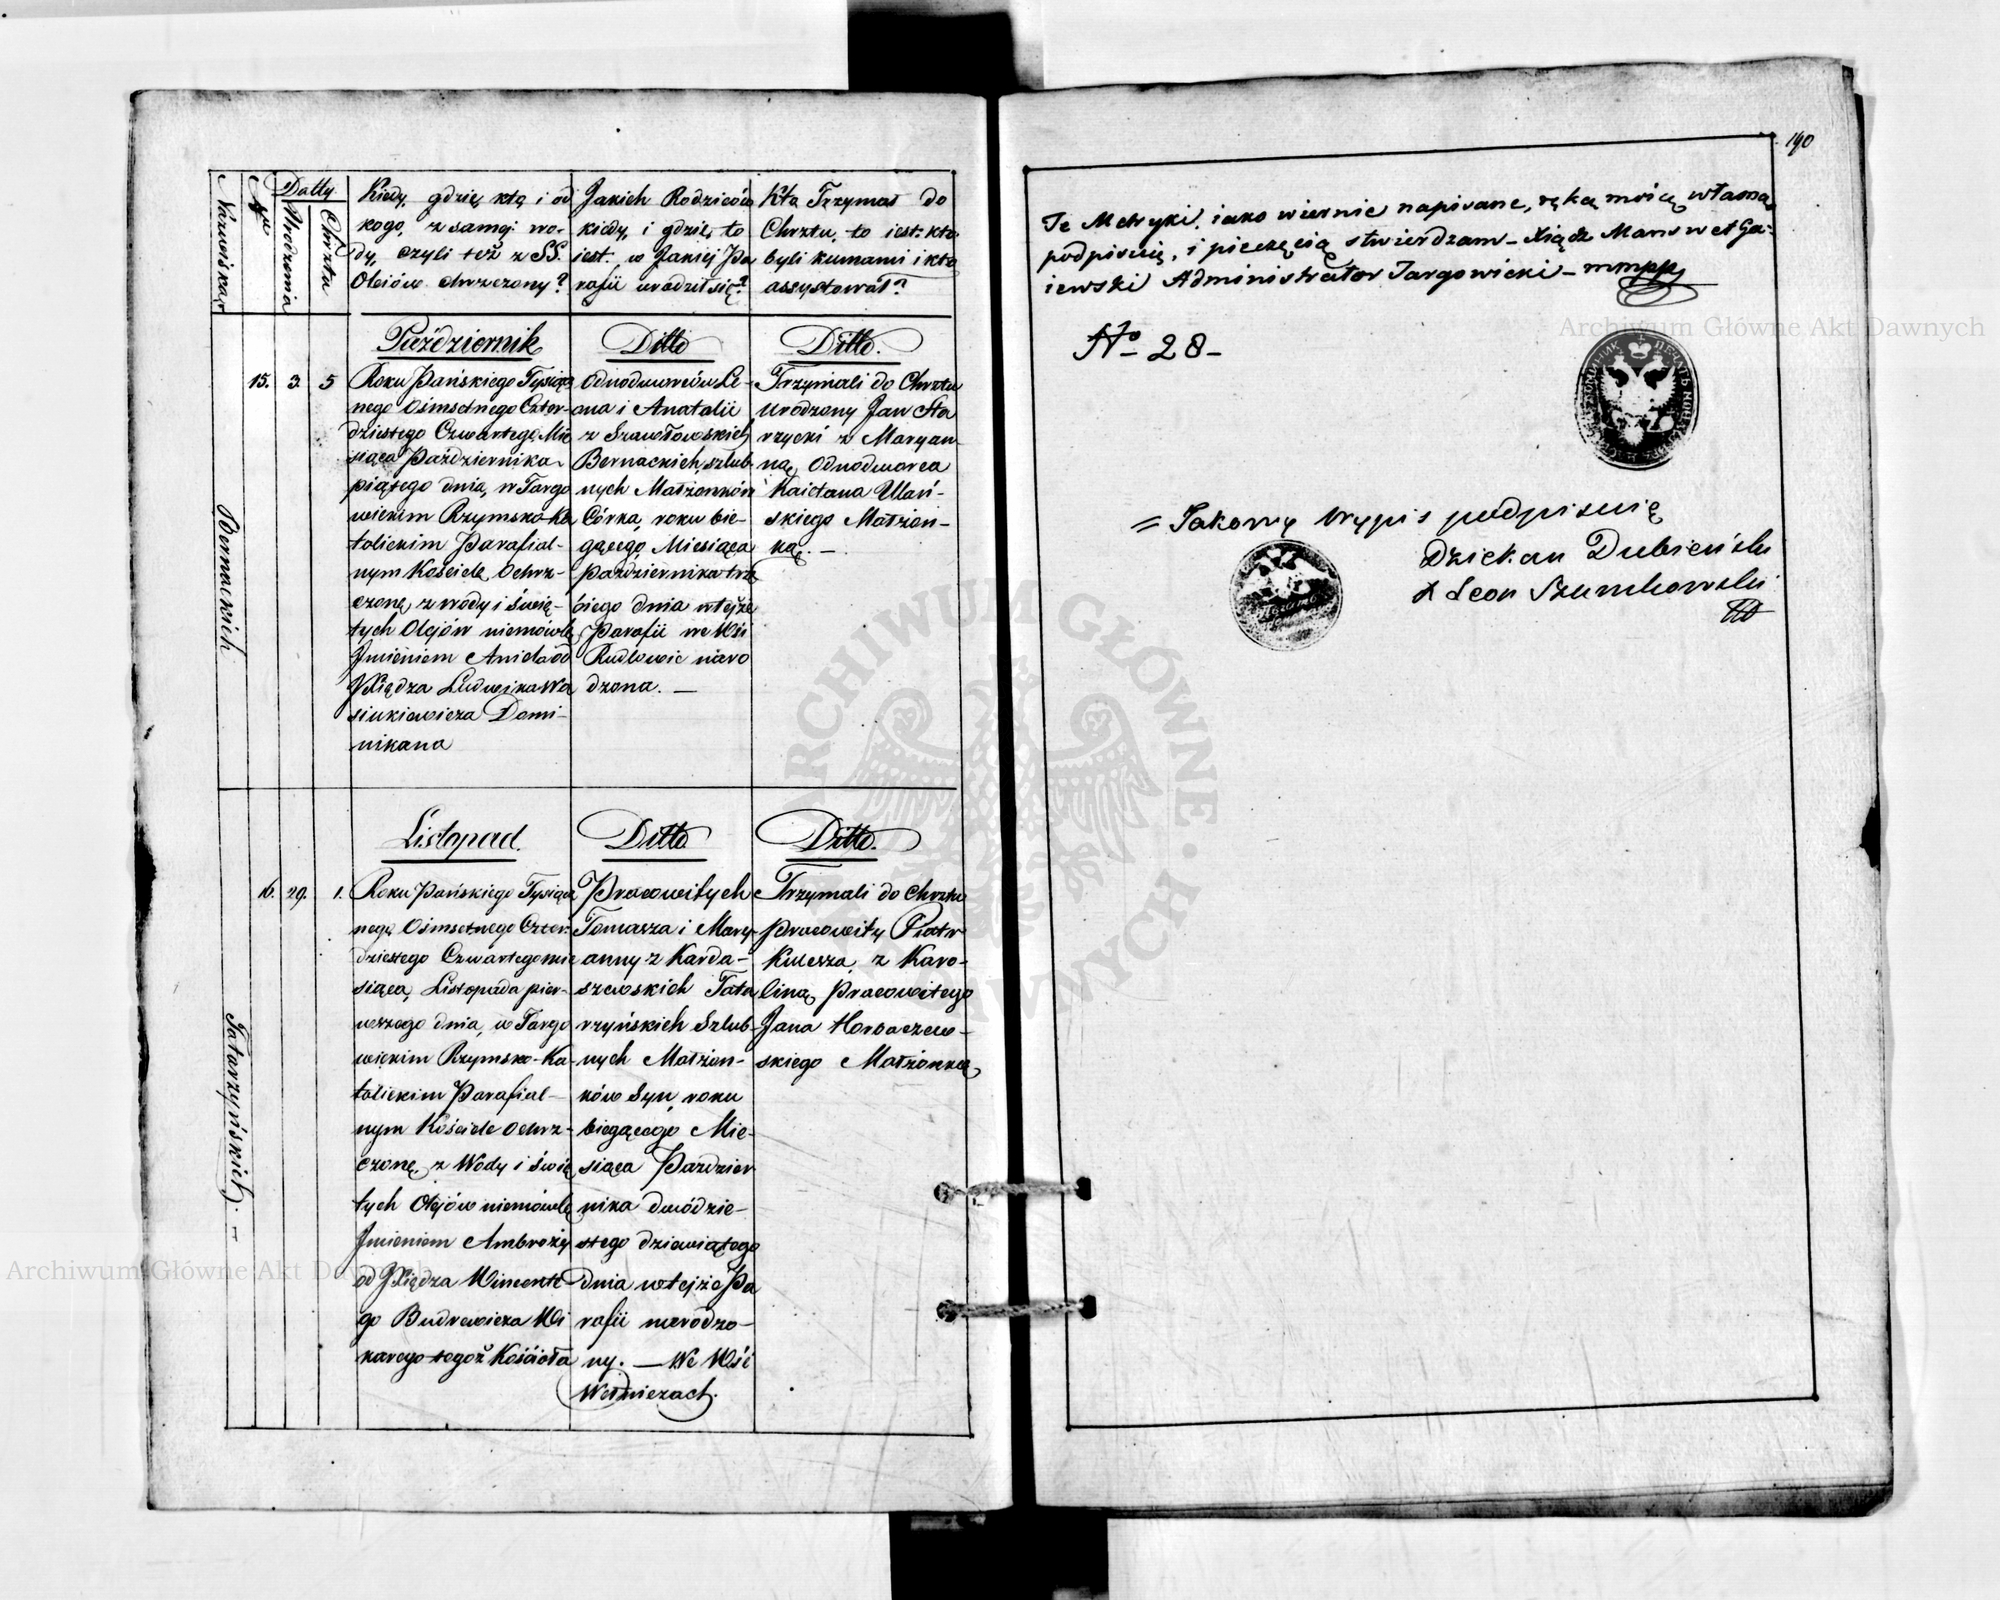 190
Datty
Nazwiska
Nru
Urodzenia
Chrztu
Kiedy, gdzie, kto i od
kogo, z samej wo-
dy, czyli też z SS.
Olejów chrzczony?
Jakich Rodziców
kiedy, i gdzie to
iest. w Jakiej Pa
rafii urodził się?
Kto Trzymał do
Chrztu, to iest: kto
byli kumami i kto
assystował?
Październik
Ditto
Ditto.
Bernackich
15. 3. 5
Roku Pańskiego Tysiącz
nego Ośmsetnego Czter-
dziestego Czwartego Mie
siąca Października
piątego dnia, w Targo
wickim Rzymsko-Ka
tolickim Parafial-
nym Kościele Ochrz-
czone z wody i Świę-
tych Olejów niemowle
Imieniem Aniela od
JXiędza Ludwika Wa
siukiewicza Domi-
nikana
Odnodworców Le-
ona i Anatalii
z Szawłowskich
Bernackich, szlub-
nych Małżonków
Córka, roku bie-
gącego, Miesiąca
Października trze
ciego dnia w tejże
Parafii we Wsi
Rudłowie naro
dzona. —
Trzymali do Chrztu
Urodzony Jan Sta
rzycki z Maryan-
ną Odnodworca
Kaietana Ulań-
skiego Małżon-
ką. —
Listopad.
Ditto
Ditto.
Tatarzyńskich. -
16. 29. 1.
Roku Pańskiego Tysiącz
nego Ośmsetnego Czter-
dziestego Czwartego mie
siąca, Listopada pier-
wszego dnia, w Targo
wickim Rzymsko-Ka-
tolickim Parafial-
nym Kościele Ochrz-
czone, z Wody i Świę
tych Olejów niemowle
Imieniem Ambroży
od JXiędza Wincente
go Budrewicza Wi
karego tegoż Kościoła
Pracowitych
Tomasza i Mary-
anny z Karda-
szewskich Tata
rzyńskich Szlub-
nych Małżon-
ków Syn, roku
biegącego Mie-
siąca Paździer
nika dwódzie-
stego dziewiątego
dnia w tejże Pa
rafii narodzo-
ny. — We Wsi
Wołniczach.
Trzymali do Chrztu
Pracowity Piotr
Kulesza, z Karo-
liną Pracowitego
Jana Horbaczew-
skiego Małżonką,
Te Metryki, iako wiernie napisane, ręką moią własną
podpisuię, i pieczęcią stwierdzam - Xiądz Manswet Ga-
iewski Administrator Targowicki - mmpp
No 28-
= Takowy Wypis podpisuię
Dziekan Dubieński
X Leon Szumkowski
Archiwum Główne Akt Dawnych
Archiwum Główne Akt Dawnych
ARCHIWUM GŁÓWNE AKT DAWNYCH